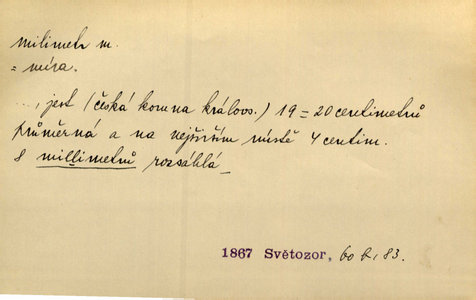 milimetr m.
= míra.
..., jest (česká koruna královs.) 19 = 20 centimetrů
průměrná a na nejširším místě 4 centim.
8 millimetrů rozsáhlá
1867 Světozor, 83.